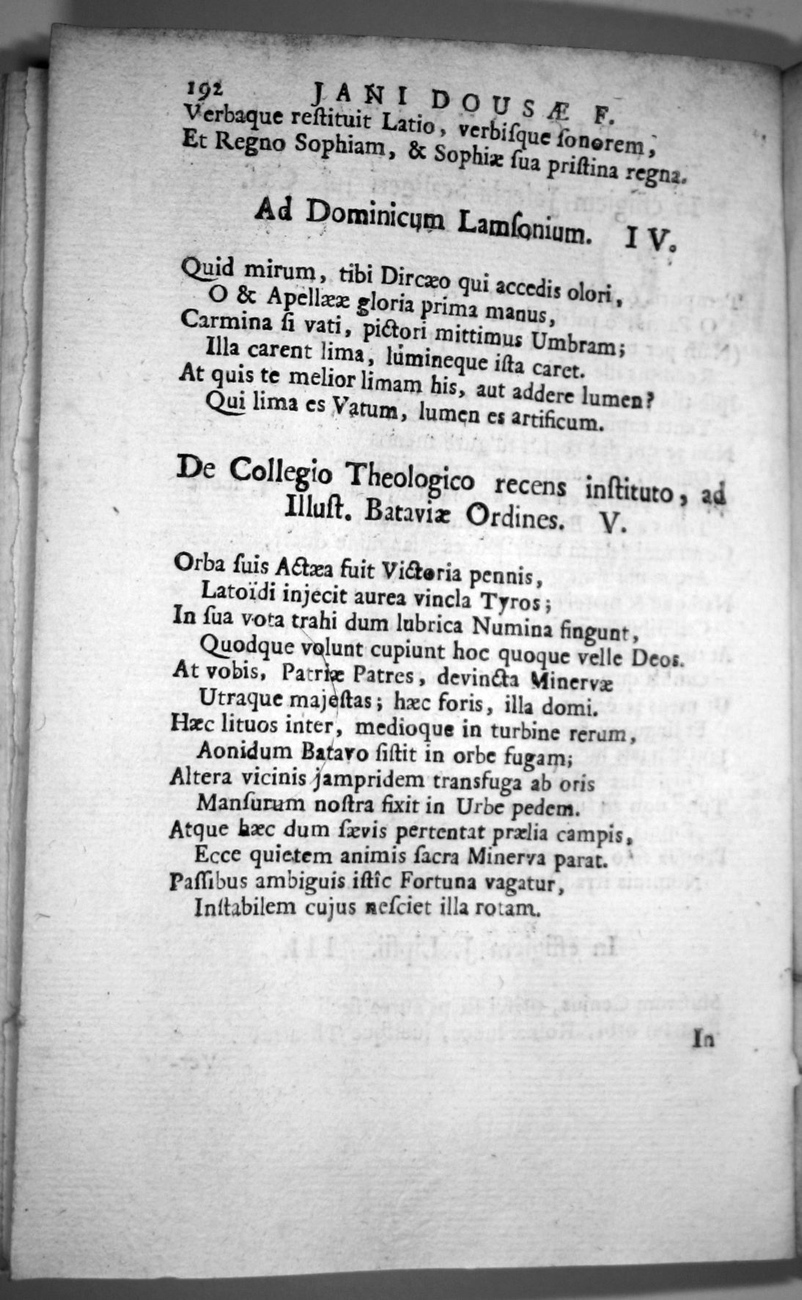 192 JANI DOUSÆ F.
Verbaque reſtituit Latio, verbiſque ſonorem,
Et Regno Sophiam, & Sophiæ ſua priſtina regna.
Ad Dominicum Lamſonium. IV.
Quid mirum, tibi Dircæo qui accedis olori,
O & Apellææ gloria prima manus,
Carmina ſi vati, pictori mittimus Umbram;
Illa carent lima, lumineque iſta caret.
At quis te melior limam his, aut addere lumen?
Qui lima es Vatum, lumen es artificum.
De Collegio Theologico recens inſtituto, ad
Illuſt. Bataviæ Ordines. V.
Orba ſuis Actæa fuit Victoria pennis,
Latoïdi injecit aurea vincla Tyros;
In ſua vota trahi dum lubrica Numina fingunt,
Quodque volunt cupiunt hoc quoque velle Deos.
At vobis, Patriæ Patres, devincta Minervæ
Utraque majeſtas; hæc foris, illa domi.
Hæc lituos inter, medioque in turbine rerum,
Aonidum Batavo ſiſtit in orbe fugam;
Altera vicinis jampridem transfuga ab oris
Manſurum noſtra fixit in Urbe pedem.
Atque hæc dum ſævis pertentat prælia campis,
Ecce quietem animis ſacra Minerva parat.
Paſſibus ambiguis iſtîc Fortuna vagatur,
Inſtabilem cujus neſciet illa rotam.
In